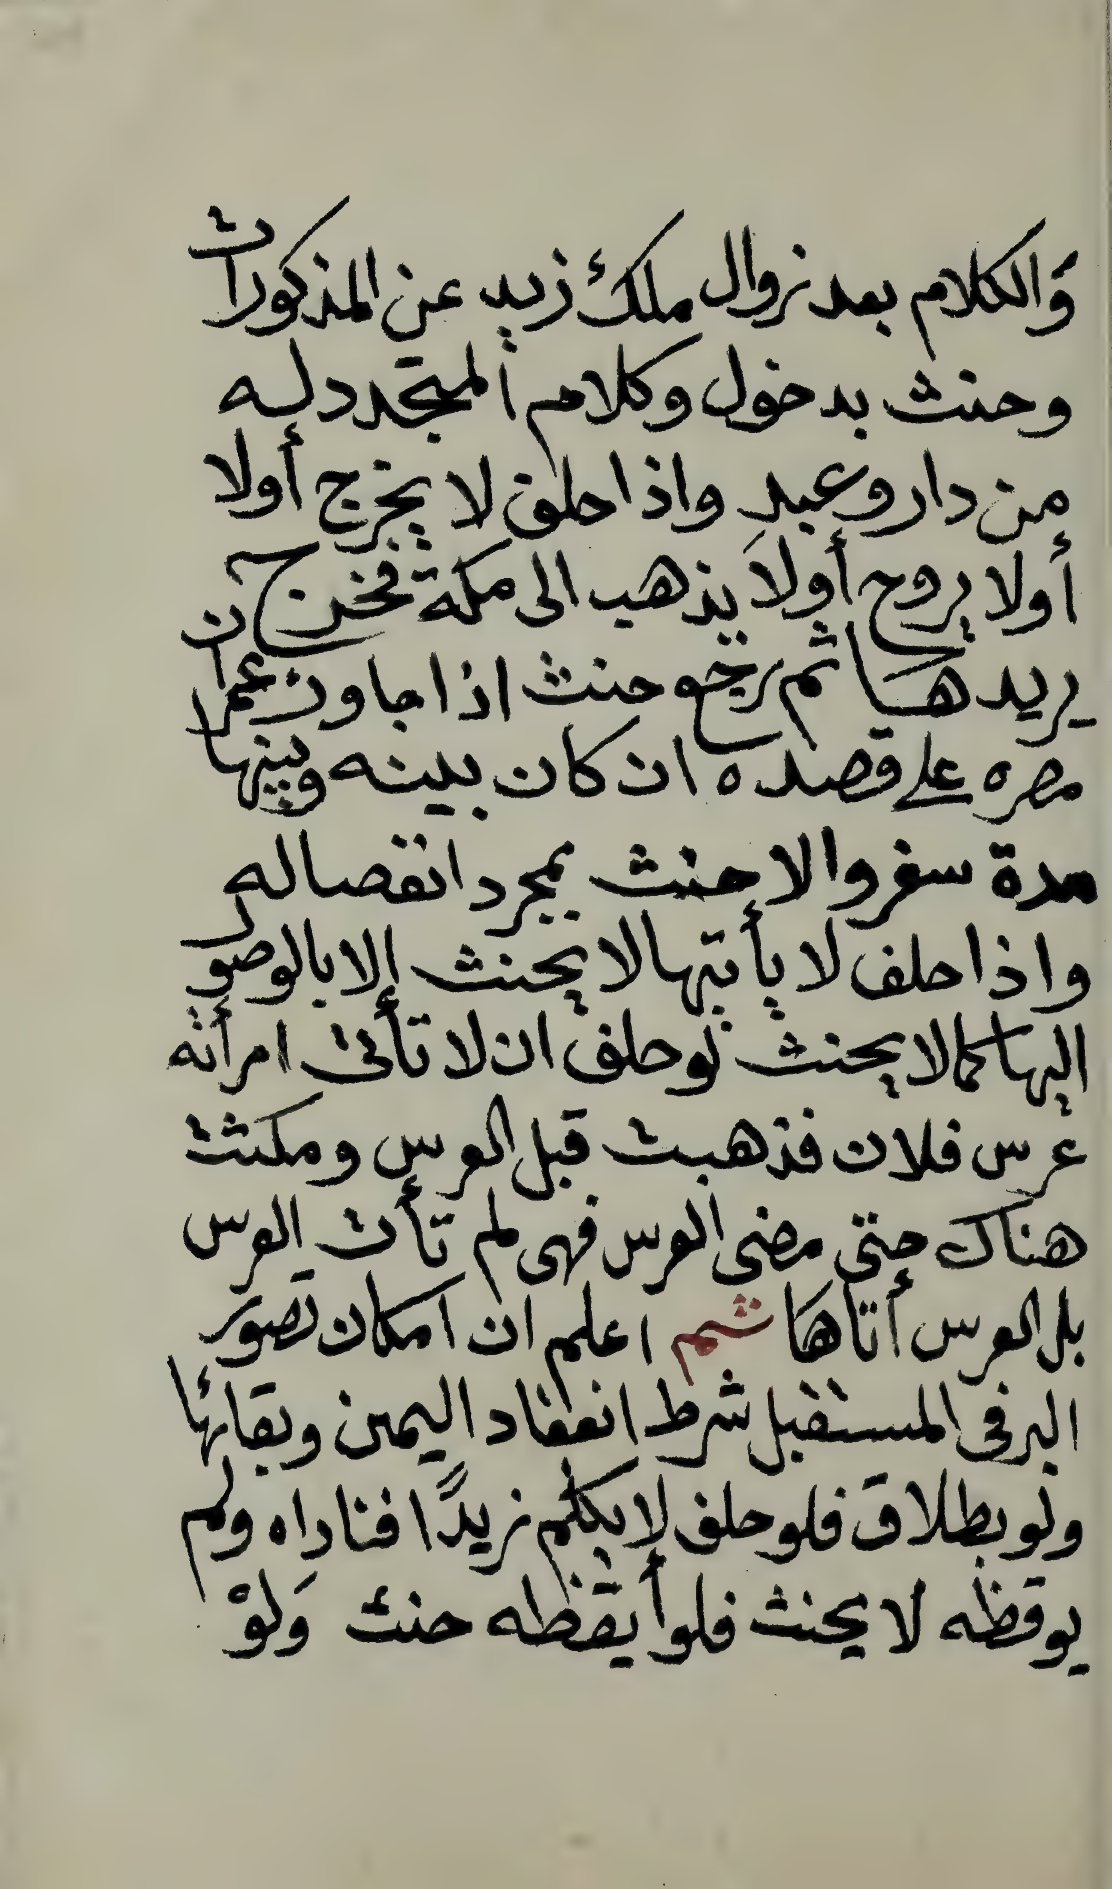 وَالكلام بعد زوال ملك زيد عن المذكورات
وحنث بدخول وكلام المتجدد له
من دار وعبدٍ واذا حلف لا يخرج أولا
أولا يروح أولا يذهب الى مكة فخرج
يريدها ثم رجع حنث اذا جاوز عمران
مصره على قصده ان كان بينه وبينها
مدة سفر والا حنث بمجرد انفصاله
واذا حلف لا يأتيها لا يحنث إلا بالوصو
اليها كما لا يحنث لو حلف ان لا تأتى امرأته
عرس فلان فذهبت قبل العرس ومكثت
هناك حتى مضى العرس فهى لم تأت العرس
بل العرس أتاها ثم اعلم ان امكان تصور
البر فى المستقبل شرط انعقاد اليمين وبقائها
ولو بطلاق فلو حلف لا يكلم زيدًا فناداه ولم
يوقظه لا يحنث فلو أيقظه حنث وَلَوْ